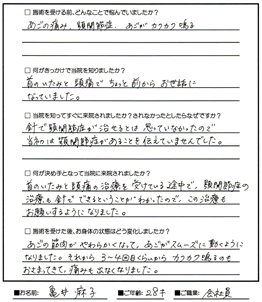 □ 施術を受ける前、どんなことで悩んでいましたか?
あごの痛み、顎関節症、あごがカクカク鳴る
□ 何がきっかけで当院を知りましたか?
首のいたみと頭痛でちょっと前からお世話に
なっていました。
□ 当院を知ってすぐに来院されましたか?されなかったとしたらなぜですか?
針で顎関節症が治せるとは思っていなかったので
当初は顎関節症があることを伝えていませんでした。
□ 何が決め手となって当院に来院されましたか?
首のいたみと頭痛の治療を受けている途中で、顎関節症の
治療も針でできるということがわかたので、この治療も
お願いするようになりました。
□ 施術を受けた後、お身体の状態はどう変化しましたか?
あごの筋肉がやわらかくなって、あごがスムーズに動くように
なりました。それから3~4回目くらいからカクカク鳴るのも
おさまってきて、痛みも出なくなりました。
■お名前: 亀井 麻子 ■ご年齢: 28才 ■ご職業: 会社員